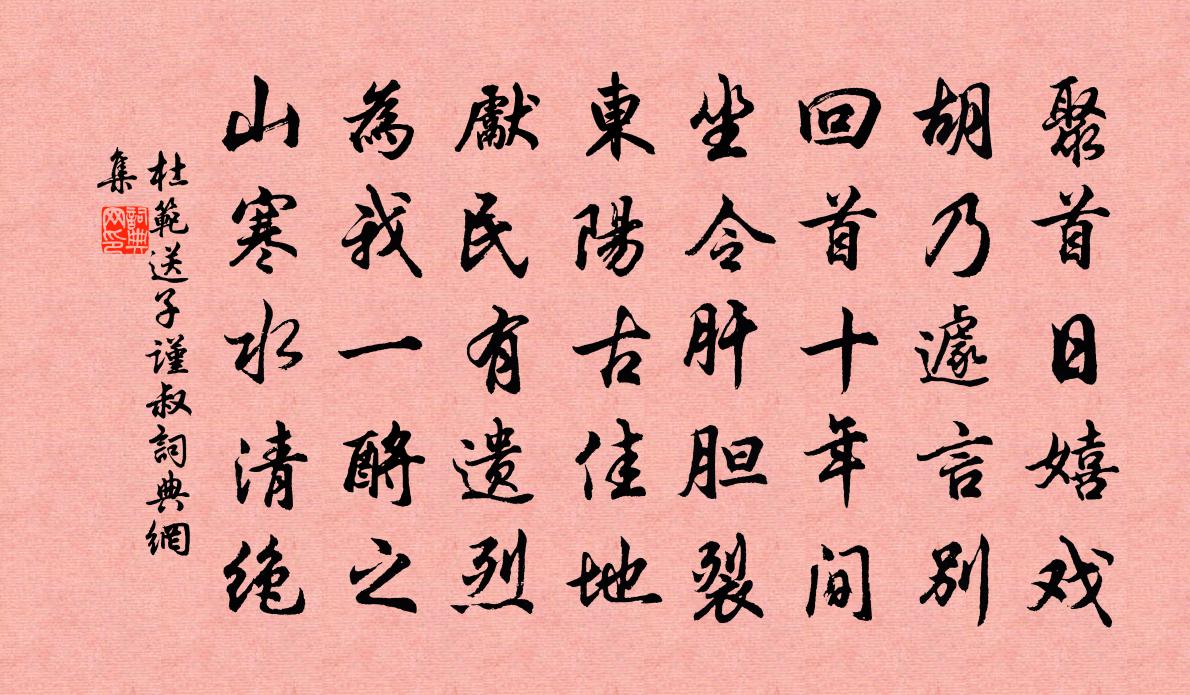 聚首日嬉戏
胡乃遽言别
回首十年间
坐令肝胆裂
東陽古佳地
獻民有遗烈
為我一酹之
山寒水清绝
杜範送子謹叔詞典網
集
詞典网印